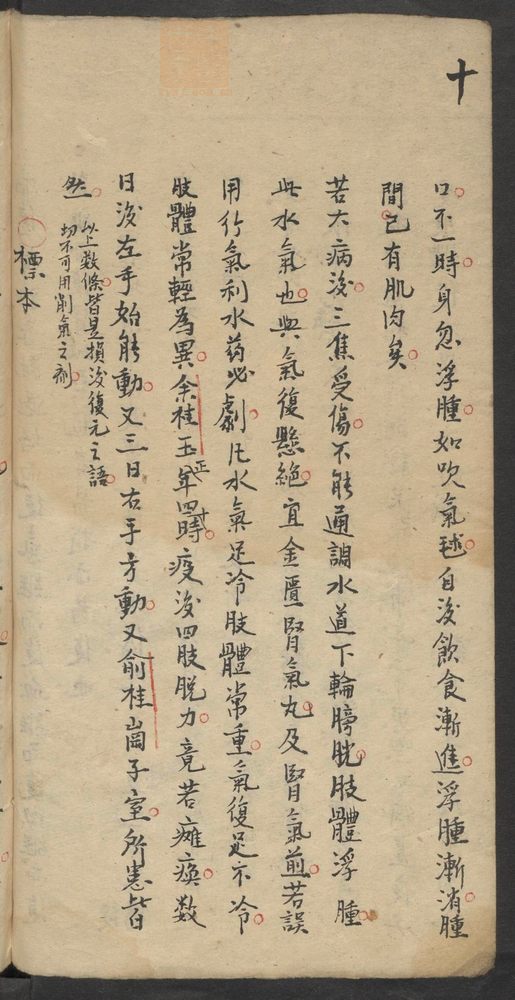 十
口不一時身忽浮腫如吹氣毬自後飲食漸進浮腫漸消腫
間已有肌肉矣
若大病後三焦受傷不能通調水道下輪膀胱肢體浮腫
此水氣也與氣復懸絶宜金匱腎氣丸及腎氣煎若誤
用行氣利水药必劇凡水氣足冷肢體常重氣復足不冷
肢體常輕為異余桂玉年四正時疫後四肢脱力竟若瘫瘓数
日後左手始能動又三日右手方動又俞桂崗子室所患皆
然以上数條皆是損後復元之語
切不可用削氣之剤
標本